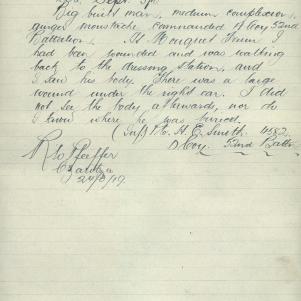 Big built man, medium complexion,
ginger moustache. Commanded A Coy 52nd
Battalion. At Mouquet Farm I
had been wounded and was walking
back to the dressing station, and
I saw his body. There was a large
wound under the right ear. I did
not see the body afterwards, nor do
I know where he was buried.
H. E. Smith. 4582.
D Coy. 52nd Battn